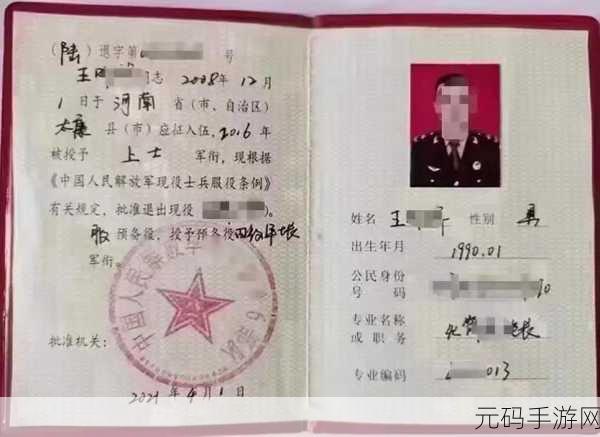 (陆) 退字第 号
王 同志 2008年12月
1日于 河南 省(市、自治区)
太康 县(市)应征入伍,2016年
被授予 上士 军衔,现根据
《中国人民解放军现役士兵服役条例》
有关规定,批准退出现役 )。
服 预备役,授予预备役四级军士长
军衔。
中国人民解放军
批准机关:
2021年4月1日
姓名 王 性别 男
出生年月 1990.01
公民身份
号码 0
专业名称
或职务
专业编码 013
元码手游网